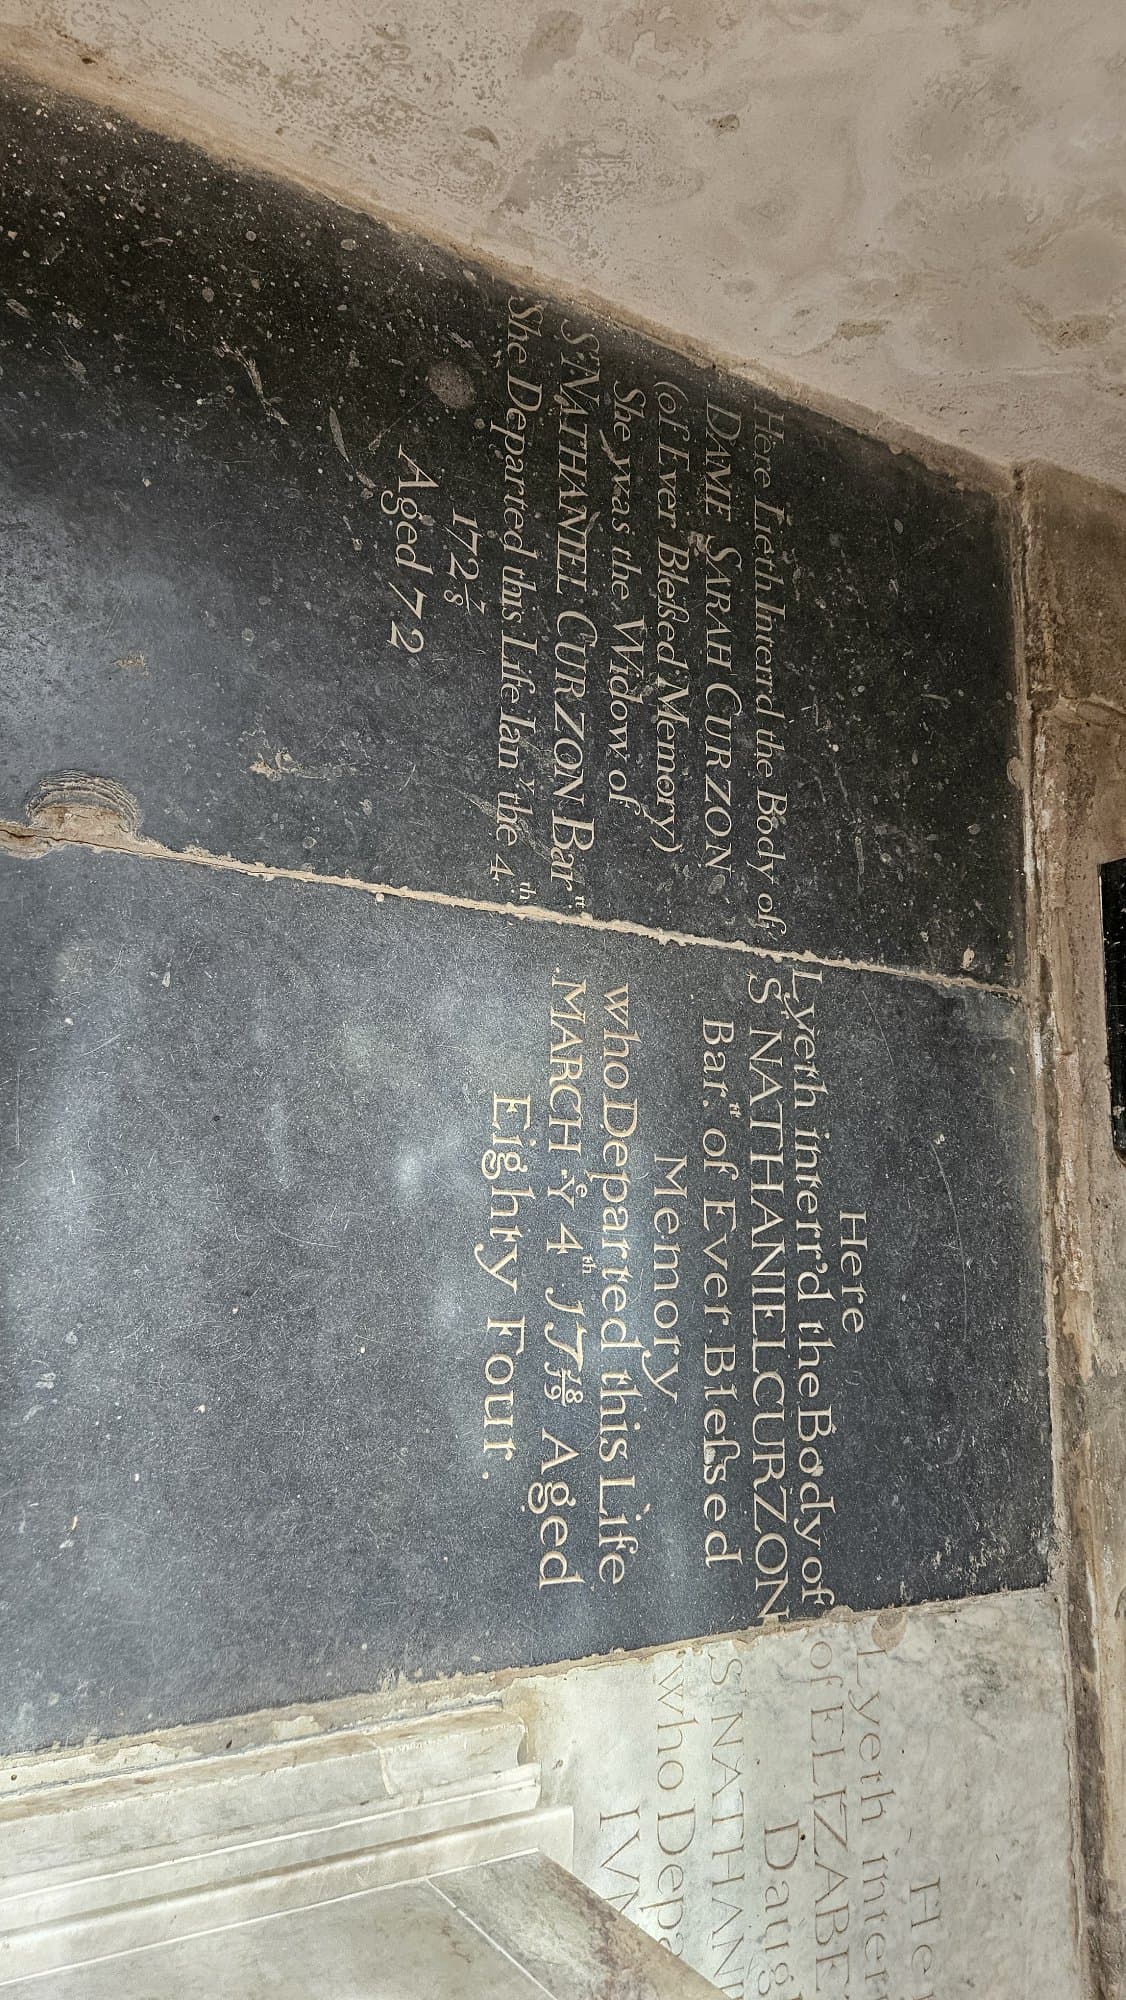 Here Lieth Interrd the Body of
DAME SARAH CURZON
(of Ever Bleſsed Memory)
She was the Widow of
Sr NATHANIEL CURZON Barrtt
She Departed this Life Ianry the 4th
172 7/8
Aged 72
Here
Lyeth interr'd the Body of
S NATHANIEL CURZON
Bar.tt of Ever Bleſsed
Memory
who Departed this Life
MARCH Ye 4th J7 J8/J9 Aged
Eighty Four.
Lyeth inter
of ELIZABE
Daug
Sr NATHAN
who Depa